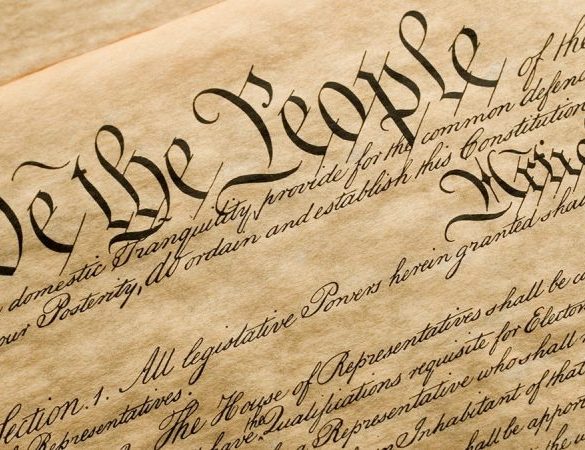 We the People of the
domestic Tranquility, provide for the common defenc
our Posterity, do ordain and establish this Constitution
Artic
Section. 1. All legislative Powers herein granted shall
of Representatives.
The House of Representatives shall be c
have the Qualifications requisite for Elector
a Representative who shall
Inhabitant of that
shall be appor